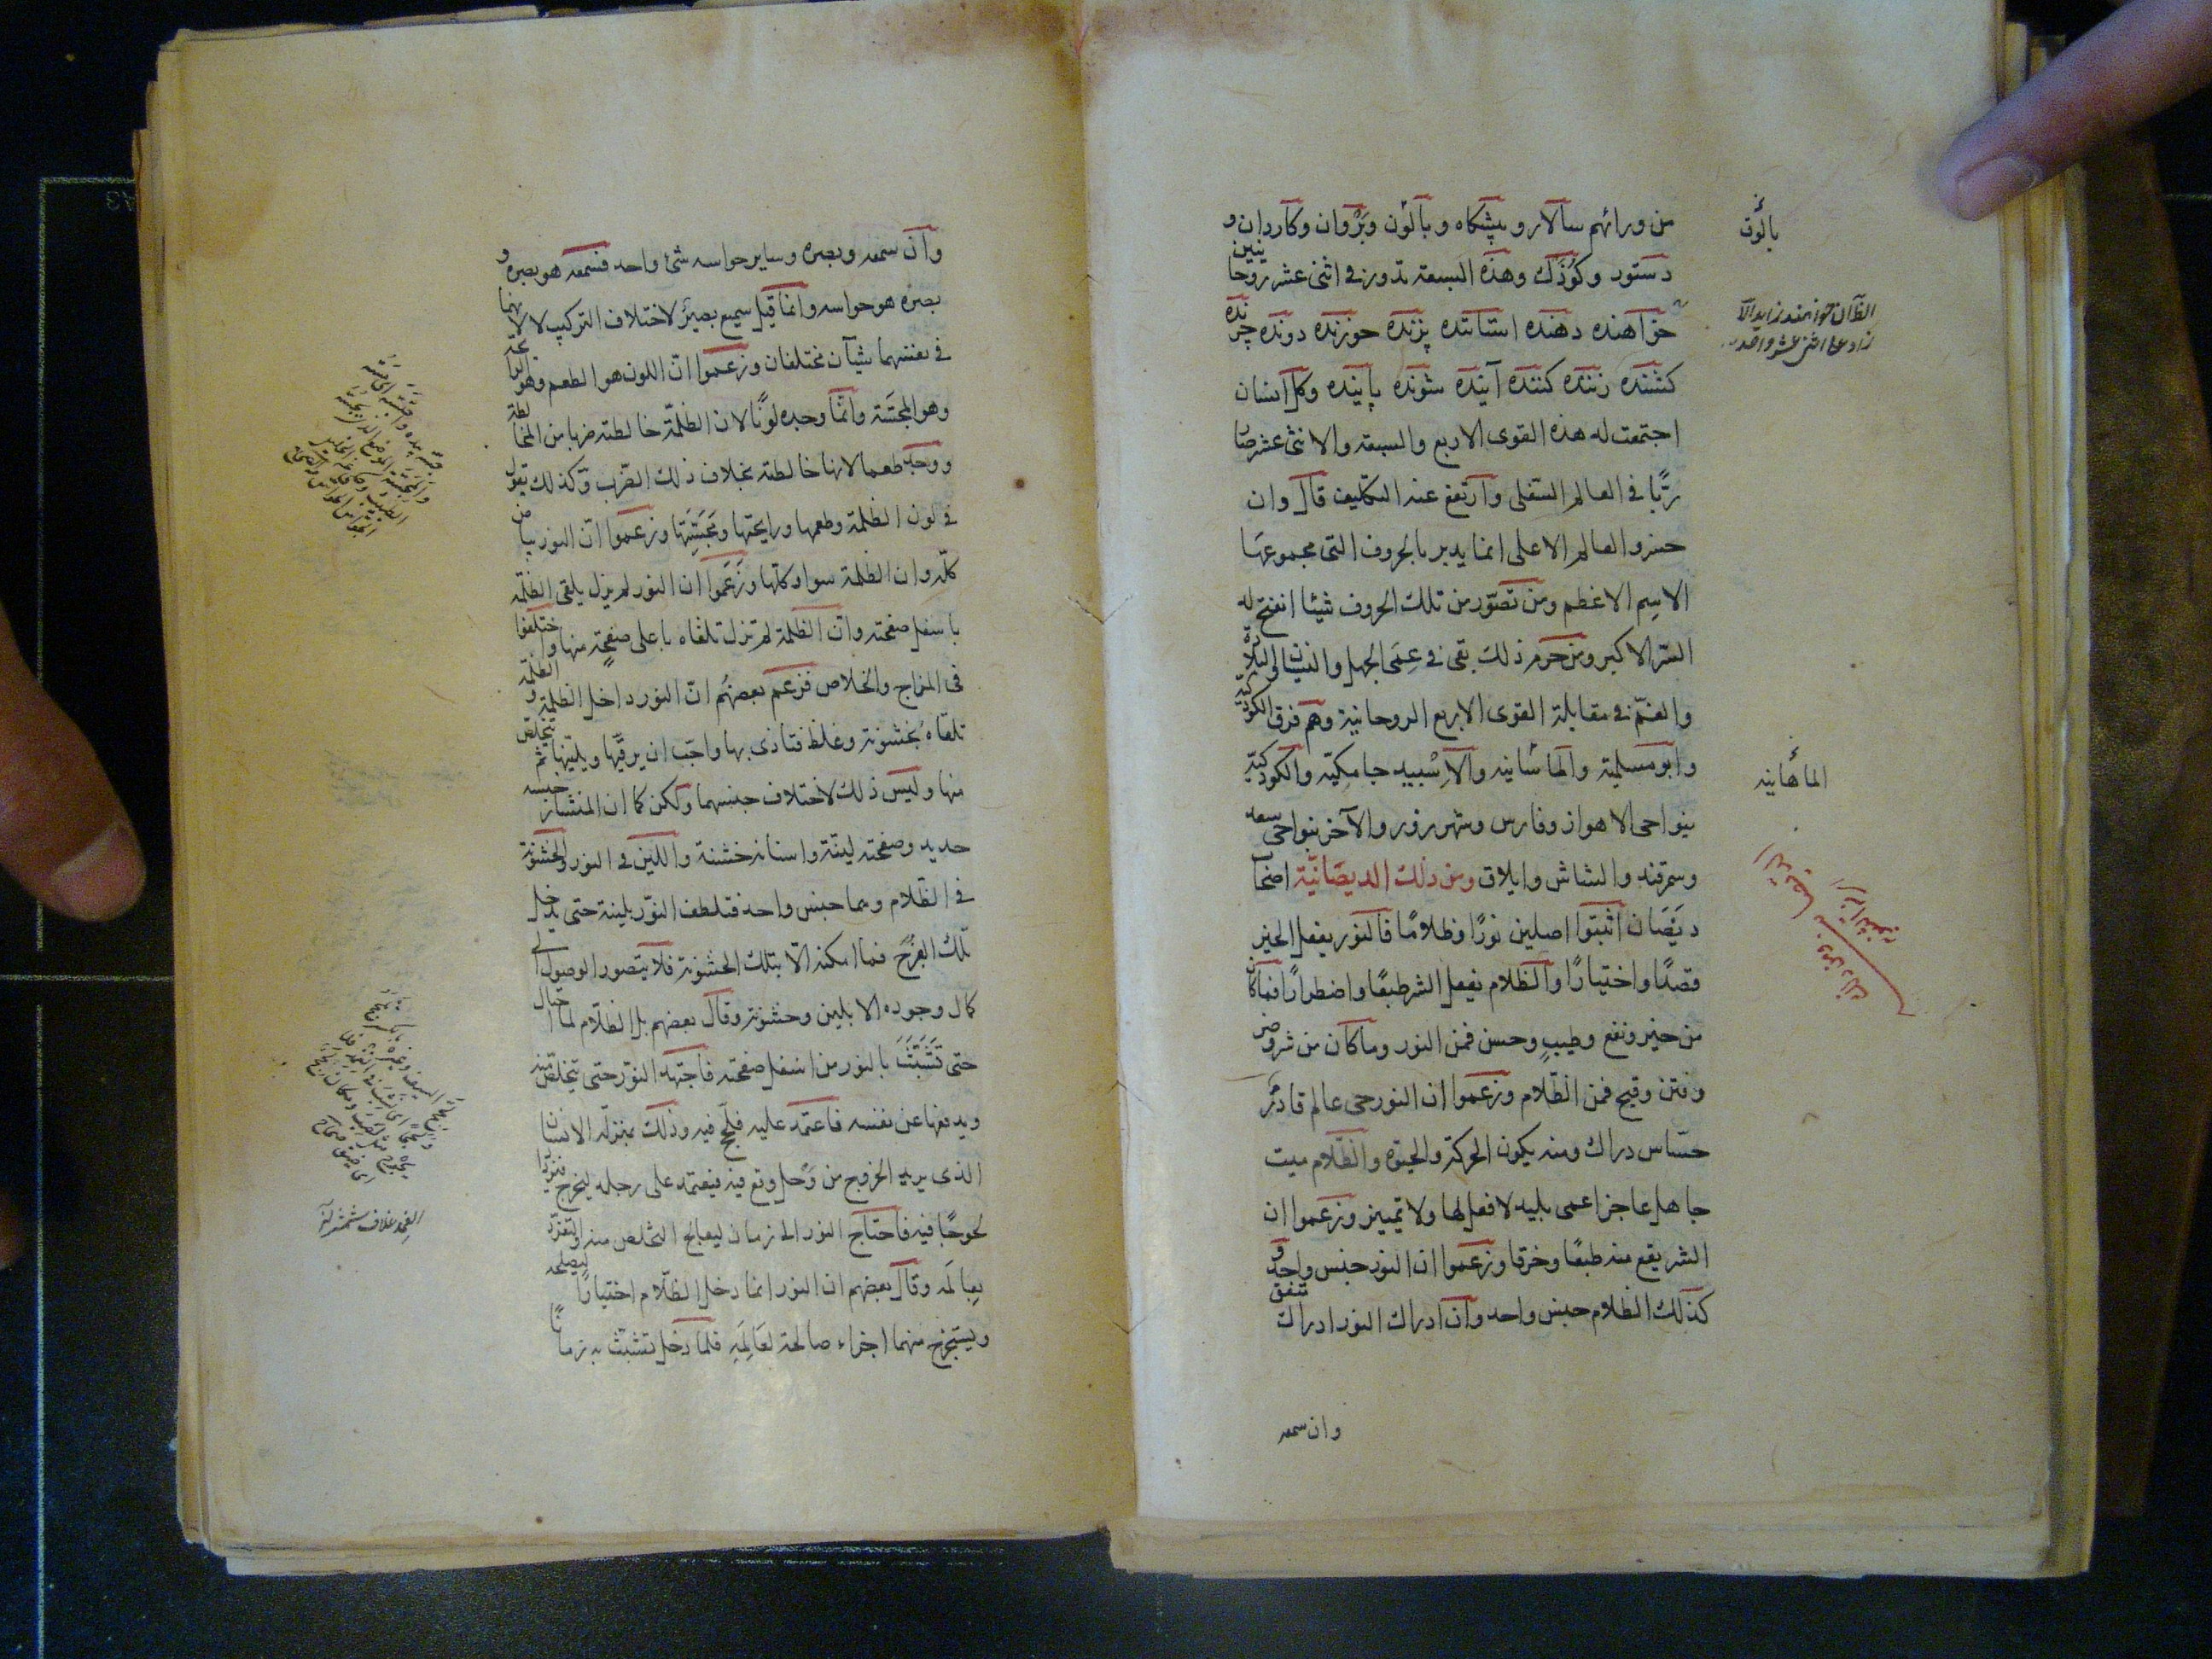 من ورائهم سالار و پيشكاه و بالون وبروان وكاردان و
دستور وكوذك وهذه السبعة تدور فى اثنى عشر روحانيين
خواهنده دهنده استاننده برنده خورنده دونده چرنده
كشنده زننده كننده آينده شونده پاينده وكل انسان
اجتمعت له هذه القوى الاربع والسبعة والاثنى عشر صار
ربّا فى العالم السفلى وارتفع عنه التكليف قال وان
خسرو العالم الاعلى انما يدبر بالحروف التى مجموعها
الاسم الاعظم ومن تصور من تلك الحروف شيئا انفتح له
السر الاكبر ومن حرم ذلك بقى فى عمى الجهل والنسيان والبلادة
والغم فى مقابلة القوى الاربع الروحانية وهم فرق الكوذكية
وابو مسلمية والماهانية والاسبيد جامكية والكوذكية
بنواحى الاهواز وفارس وشهرزور والآخر بنواحى سغد
وسمرقند والشاش وايلاق ومن ذلك الديصانية اصحاب
ديصان اثبتوا اصلين نورًا وظلامًا فالنور يفعل الخير
قصدًا واختيارًا والظلام يفعل الشر طبعًا واضطرارًا فما كان
من خير ونفع وطيب وحسن فمن النور وما كان من شر وضر
ونتن وقبح فمن الظلام وزعموا ان النور حى عالم قادر
حساس دراك ومنه يكون الحركة والحيوة والظلام ميت
جاهل عاجز اعمى بليد لا فعل لها ولا تمييز وزعموا ان
الشر يقع منه طبعًا وخرقا وزعموا ان النور جنس واحد و
كذلك الظلام جنس واحد وان ادراك النور ادراك متفق
وان سمعه
بالون
الماهانيه
وان سمعه وبصره وساير حواسه شئ واحد فسمعه هو بصره و
بصره هو حواسه وانما قيل سميع بصير لاختلاف التركيب لا لانهما
فى نفسهما شيآن مختلفان وزعموا ان اللون هو الطعم وهو الرائحة
وهو المجسّة وانما وجده لونًا لان الظلمة خالطته ضربا من المخالطة
ووجد طعما لانها خالطته بخلاف ذلك الضرب وكذلك يقول
فى لون الظلمة وطعمها ورايحتها ومجستها وزعموا ان النور بياض
كله وان الظلمة سواد كلها وزعموا ان النور لم يزل يلقى الظلمة
باسفل صفحته وان الظلمة لم تزل تلقاه باعلى صفحة منها واختلفوا
فى المزاج والخلاص فزعم بعضهم ان النور داخل الظلمة والظلمة
تلقاه بخشونة وغلظ فتاذى بها واحب ان يرققها ويلينها ثم يتخلص
منها وليس ذلك لاختلاف جنسهما ولكن كما ان المنشار جنسه
حديد وصفحته لينة واسنانه خشنة واللين فى النور والخشونة
فى الظلام وهما جنس واحد فتلطف النور بلينه حتى يدخل
تلك الفرج فما امكنه الا بتلك الخشونة فلا يتصور الوصول الى
كمال وجوده الا بلين وخشونة وقال بعضهم بل الظلام لما احتال
حتى تشبث بالنور من اسفل صفحته فاجتهد النور حتى يتخلص منه
ويدفعها عن نفسه فاعتمد عليه فلجج فيه وذلك بمنزلة الانسان
الذى يريد الخروج من وحل وقع فيه فيعتمد على رجله ليخرج فيزداد
لحوجًا فيه فاحتاج النور الى زمان ليعالج التخلص منه والتفرد
بعالمه وقال بعضهم ان النور انما دخل الظلام اختيارًا ليصلحه
ويستخرج منهما اجزاء صالحة لعالمه فلما دخل تشبث به زمانًا